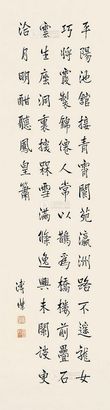 平陽池館接青霄閬苑瀛洲路不遙龍女
巧將霞製錦僊人常以鵲為橋橋前疊石
雲生座洞裏雪滿條逸興未闌談更
洽月明酣聽鳳皇簫
溥傑